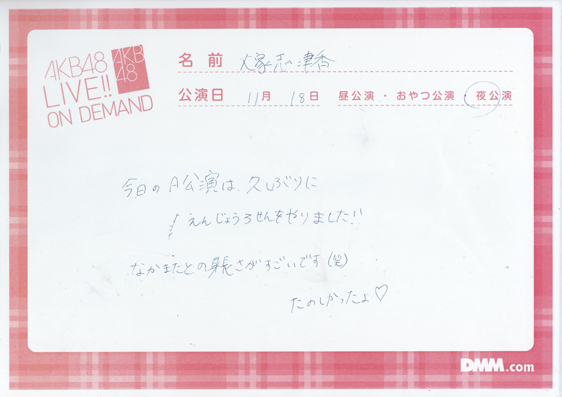 AKB48
LIVE!!
ON DEMAND
AKB
48
名前 大家志津香
公演日 11月 18日 昼公演・おやつ公演・夜公演
今日のA公演は、久しぶりに
えんじょうろせんをやりました!!
なかまたとの身長さがすごいです(笑)
たのしかったよ♡
DMM.com